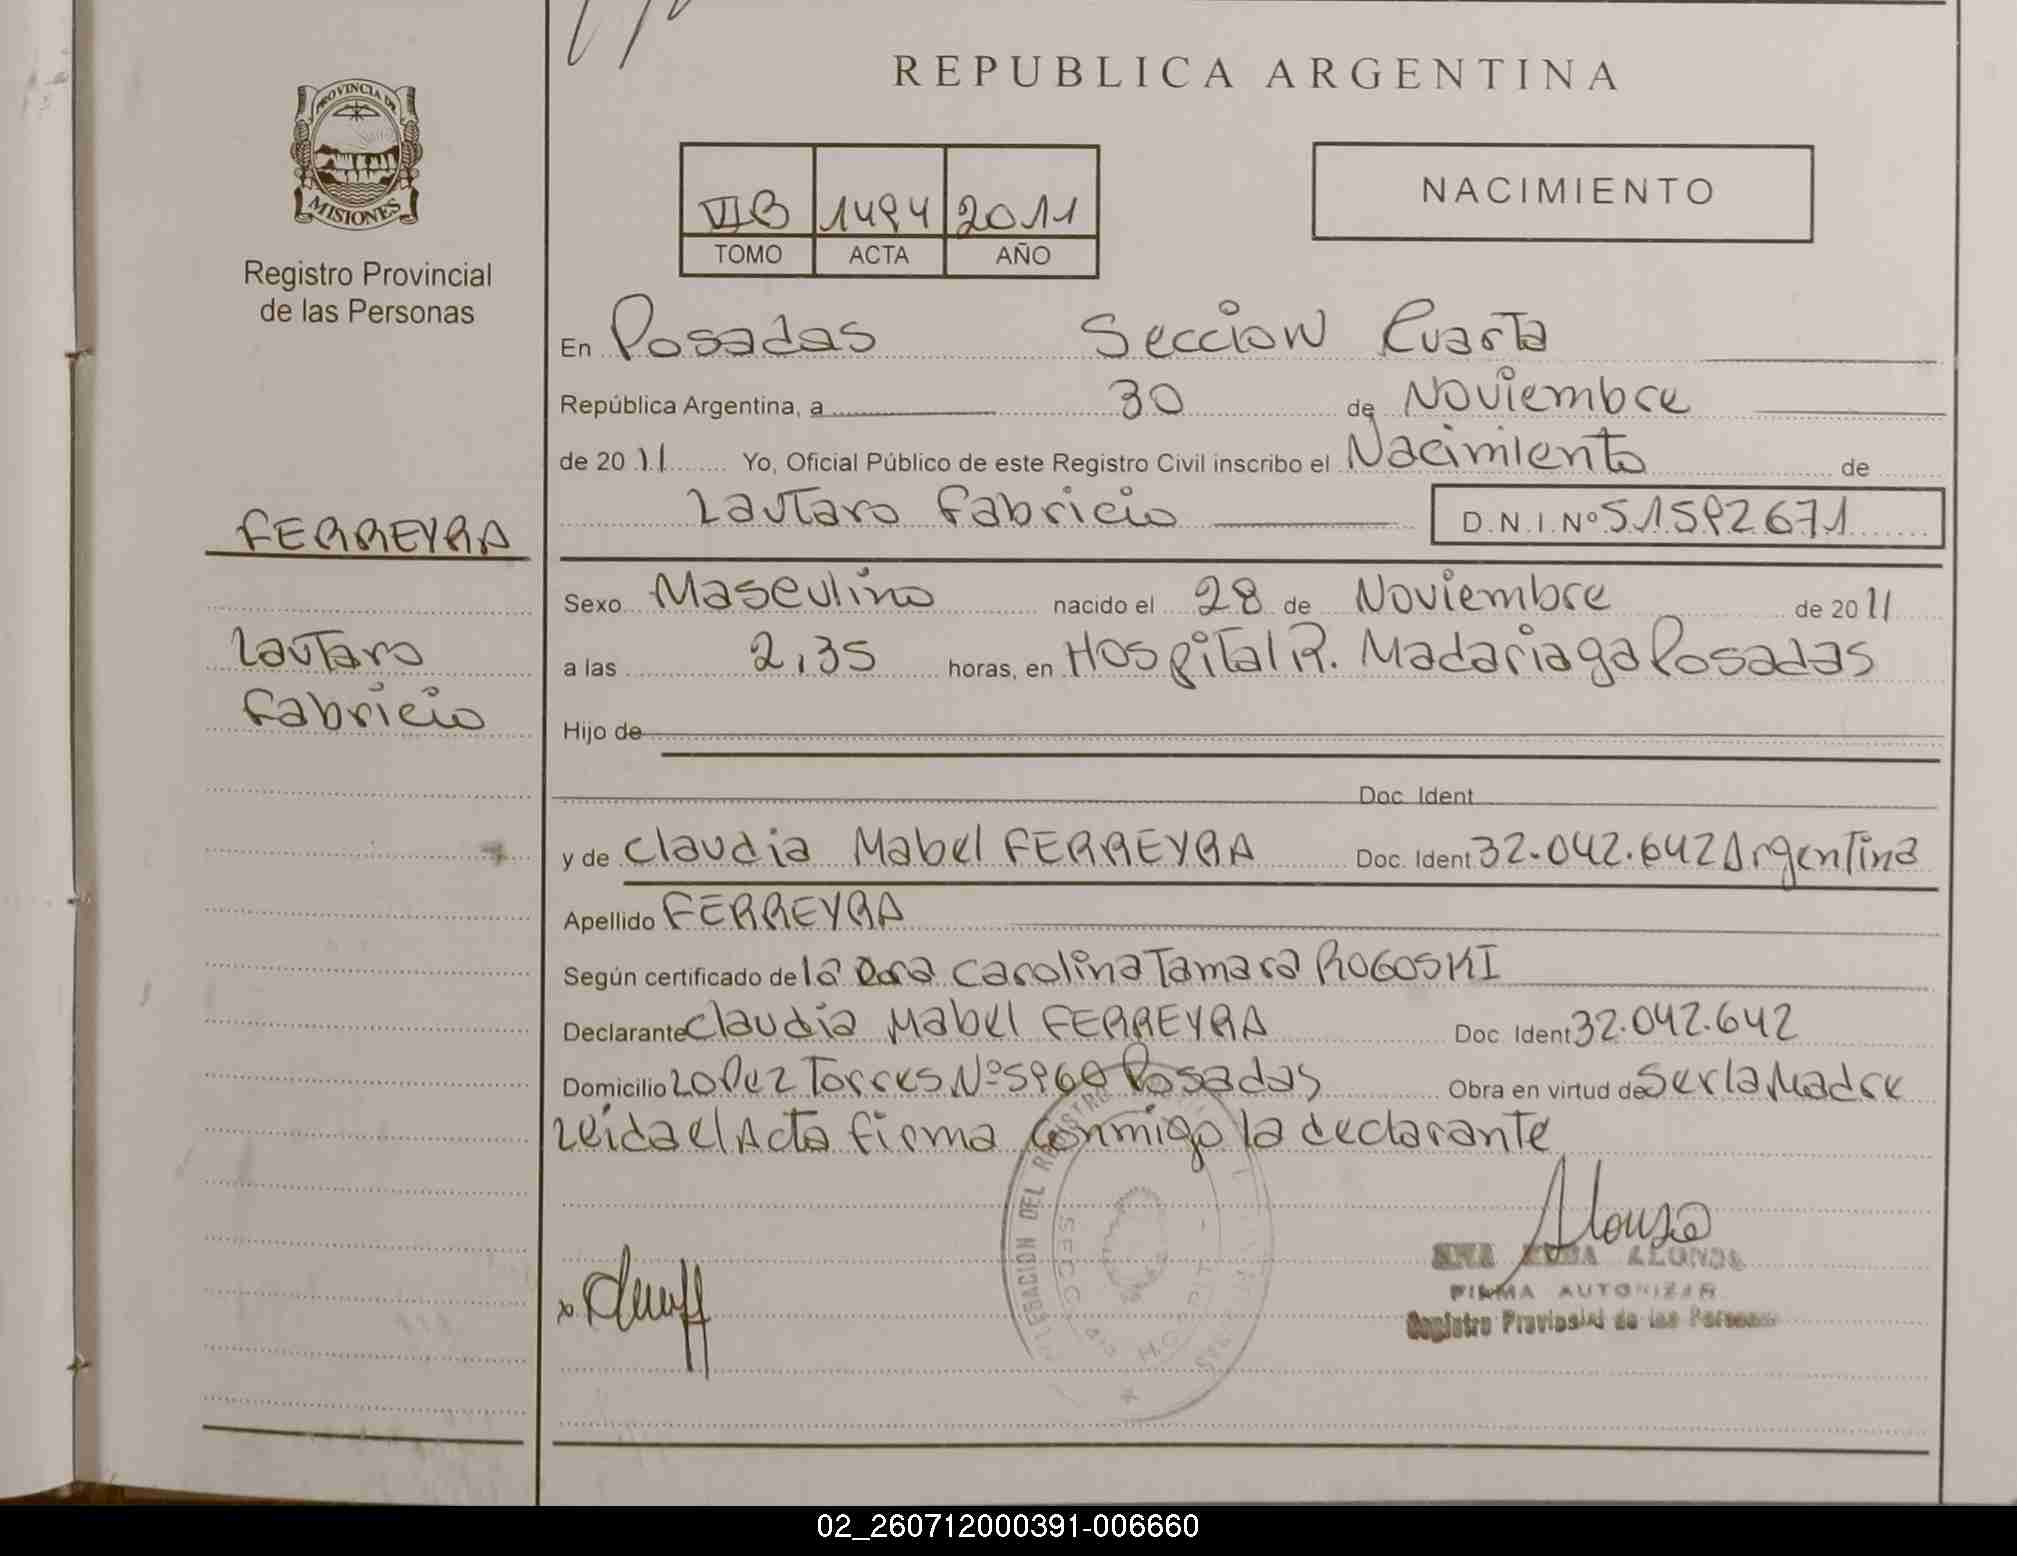 REPUBLICA ARGENTINA
PROVINCIA DE
MISIONES
Registro Provincial
de las Personas
VIB 1494 2011
TOMO ACTA AÑO
NACIMIENTO
En Posadas Seccion Cuarta
República Argentina, a 30 de Noviembre
de 2011 Yo, Oficial Público de este Registro Civil inscribo el Nacimiento de
Lautaro Fabricio D.N.I. Nº 51592671
FERREYRA
Lautaro
Fabricio
Sexo Masculino nacido el 28 de Noviembre de 2011
a las 2,35 horas, en Hospital R. Madariaga Posadas
Hijo de
Doc. Ident
y de Claudia Mabel FERREYRA Doc. Ident. 32.042.642 Argentina
Apellido FERREYRA
Según certificado de la Dra Carolina Tamara ROGOSKI
Declarante Claudia Mabel FERREYRA Doc Ident 32.042.642
Domicilio Lopez Torres Nº 5960 Posadas Obra en virtud de Ser la Madre
Leida el Acta firma conmigo la declarante
DELEGACION DEL REGISTRO
SECC.
Alonso
ALONSO
FIRMA AUTORIZAR
Registro Provincial de las Personas
02_260712000391-006660